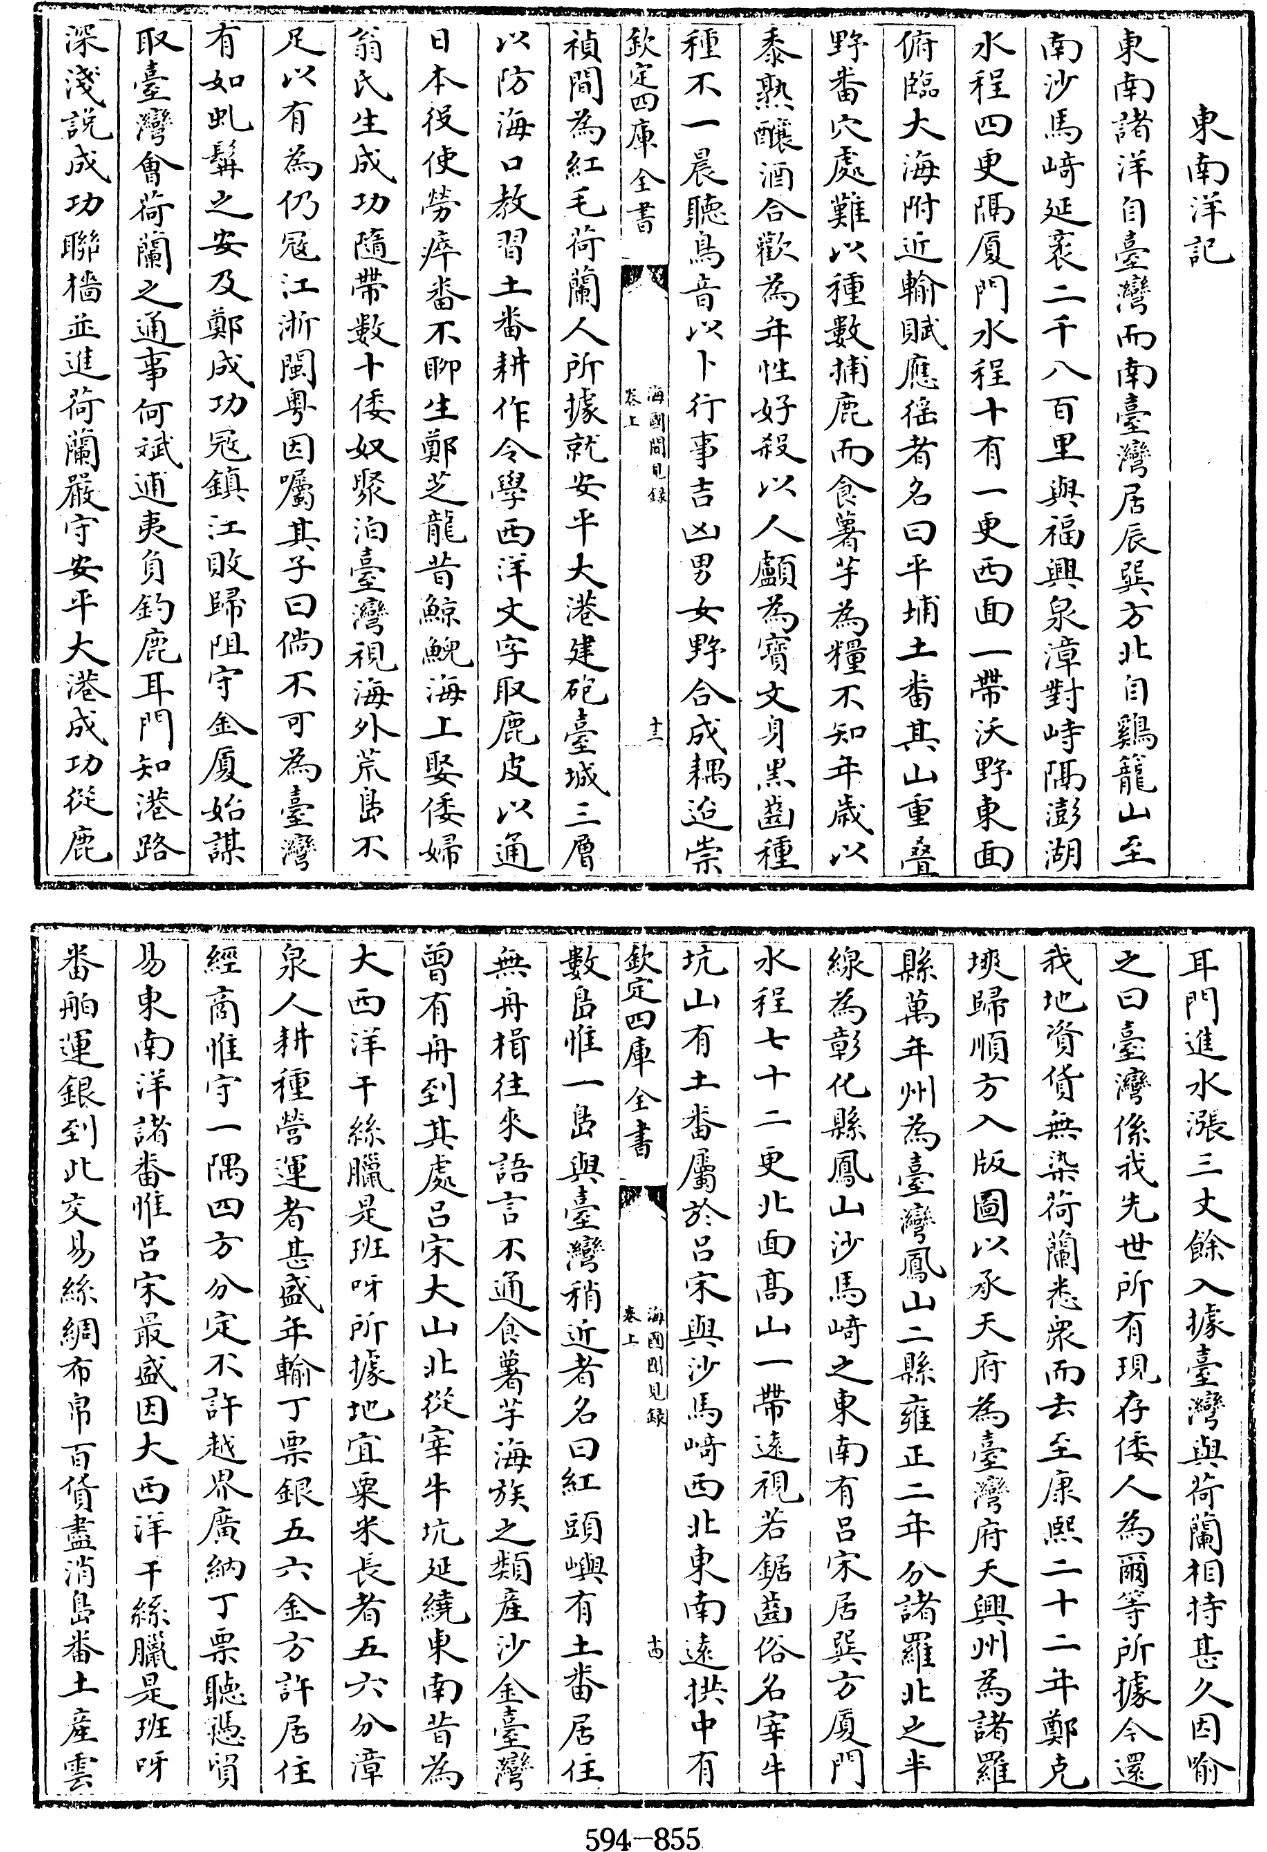 東南洋記
東南諸洋自臺灣而南臺灣居辰巽方北自鷄籠山至
南沙馬崎延袤二千八百里與福興泉漳對峙隔澎湖
水程四更隔厦門水程十有一更西面一帶沃野東面
俯臨大海附近輸賦應徭者名曰平埔土番其山重疊
野番穴處難以種數捕鹿而食薯芋為糧不知年歲以
黍熟釀酒合歡為年性好殺以人顱為寶文身黑齒種
種不一晨聽鳥音以卜行事吉凶男女野合成耦迨崇
欽定四庫全書
海國聞見録
卷上
十三
禎間為紅毛荷蘭人所據就安平大港建砲臺城三層
以防海口教習土番耕作令學西洋文字取鹿皮以通
日本役使勞瘁番不聊生鄭芝龍昔鯨鯢海上娶倭婦
翁氏生成功隨帶數十倭奴聚泊臺灣視海外荒島不
足以有為仍冦江浙閩粵因囑其子曰倘不可為臺灣
有如虬髯之安及鄭成功冦鎮江敗歸阻守金厦始謀
取臺灣會荷蘭之通事何斌逋夷負釣鹿耳門知港路
深淺説成功聯檣並進荷蘭嚴守安平大港成功從鹿
耳門進水漲三丈餘入據臺灣與荷蘭相持甚久因喻
之曰臺灣係我先世所有現存倭人為爾等所據今還
我地資貨無染荷蘭悉衆而去至康熙二十二年鄭克
塽歸順方入版圖以承天府為臺灣府天興州為諸羅
縣萬年州為臺灣鳳山二縣雍正二年分諸羅北之半
線為彰化縣鳳山沙馬崎之東南有吕宋居巽方厦門
水程七十二更北面髙山一帶遠視若鋸齒俗名宰牛
坑山有土番屬於吕宋與沙馬崎西北東南遠拱中有
欽定四庫全書
海國聞見録
卷上
十四
數島惟一島與臺灣稍近者名曰紅頭嶼有土番居住
無舟楫往來語言不通食薯芋海族之類產沙金臺灣
曾有舟到其處吕宋大山北從宰牛坑延繞東南昔為
大西洋干絲臘是班呀所據地宜粟米長者五六分漳
泉人耕種營運者甚盛年輸丁票銀五六金方許居住
經商惟守一隅四方分定不許越界廣納丁票聽憑貿
易東南洋諸番惟吕宋最盛因大西洋干絲臘是班呀
番舶運銀到此交易絲綢布帛百貨盡消島番土產雲
594—855